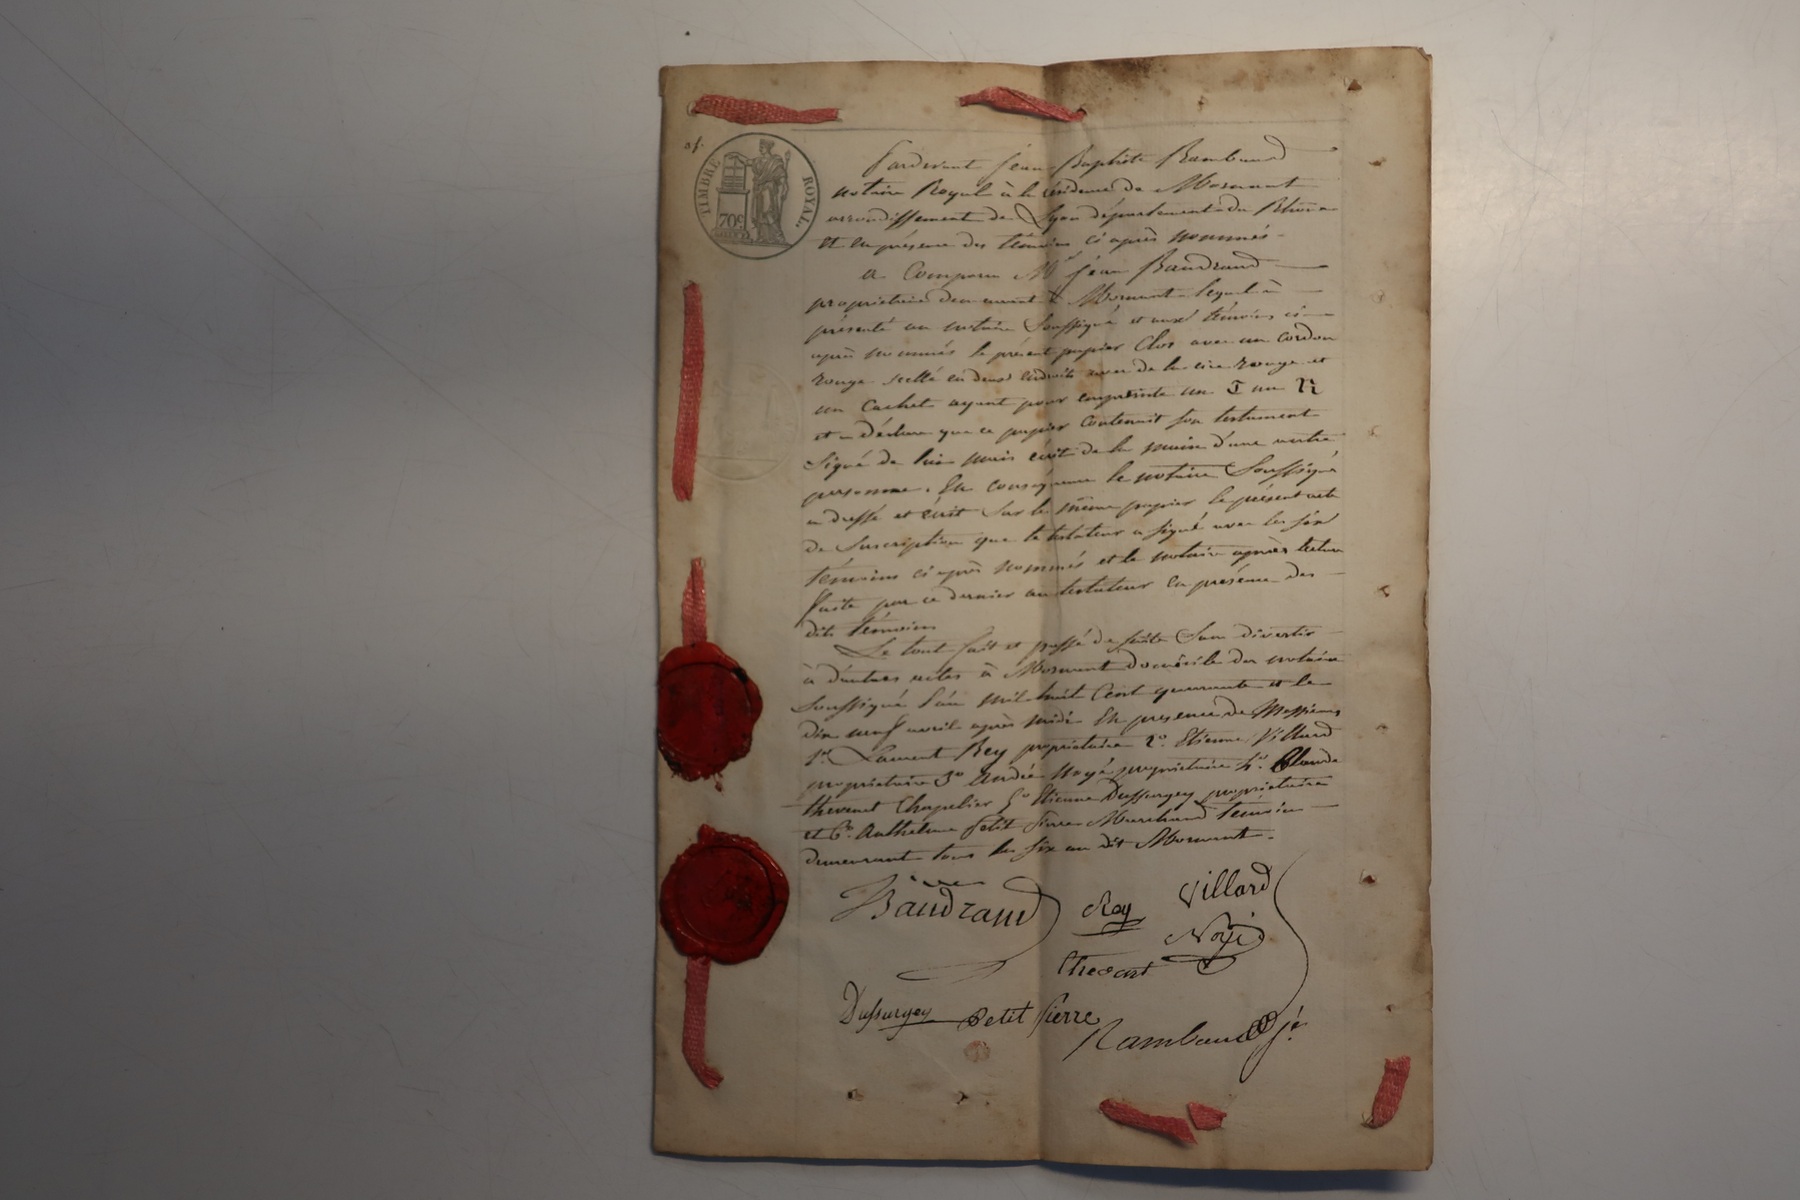 af.
TIMBRE ROYAL
70c
Pardevant Jean Baptiste Rambaud
notaire Royal à la résidence de Mornant
arrondissement de Lyon département du Rhône
et en présence des témoins ci après nommés
a Comparu Mr Jean Baudrand
propriétaire demeurant à Mornant lequel a
présenté au notaire Soussigné et aux témoins ci
après nommés le présent papier Clos avec un cordon
rouge scellé en deux endroits avec de la cire rouge et
un Cachet ayant pour empreinte un J un R
et a déclaré que ce papier Contenait son testament
Signé de lui mais écrit de la main d'une autre
personne. En conséquence le notaire Soussigné
a dressé et écrit sur le même papier le présent acte
de Suscription que le testateur a signé avec les six
témoins ci après nommés et le notaire après lecture
faite par ce dernier au testateur en présence des
dits témoins
Le tout fait et passé de suite Sans divertir
à d'autres actes à Mornant domicile du notaire
Soussigné l'an mil huit Cent quarante et le
dix neuf avril après midi En presence de Messieurs
1o. Laurent Rey propriétaire 2o. Etienne Villard
propriétaire 3o André Noyé propriétaire 4o. Claude
thevenet Chapelier 5o Etienne Dussurgey propriétaire
et 6o. Anthelme Petit Pierre Marchand témoins
demeurant tous les six au dit Mornant.
Baudrand Rey Villard
Noyé
Dussurgey Petit Pierre
Rambaud